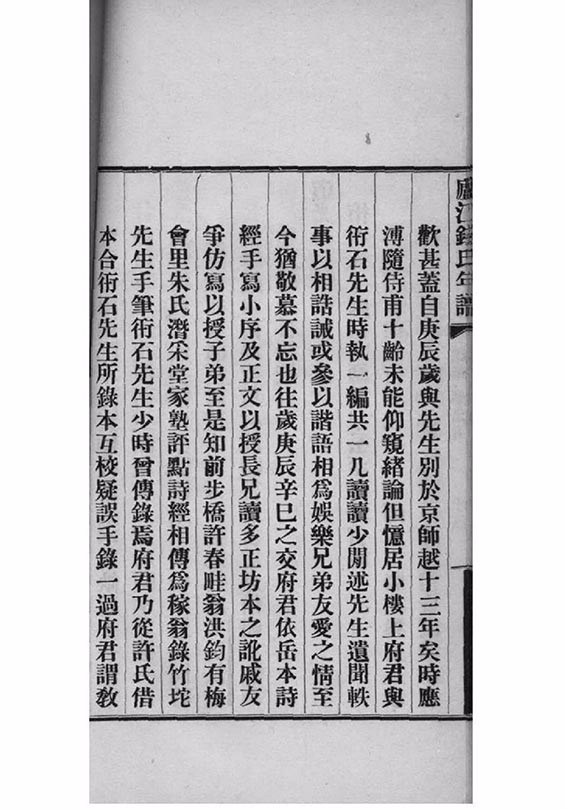 廬江錢氏年譜
歡甚蓋自庚辰歲與先生別於京師越十三年矣時應
溥隨侍甫十齡未能仰窺緒論但憶居小樓上府君與
衎石先生時執一編共一几讀讀少閒述先生遺聞軼
事以相誥誡或參以諧語相爲娛樂兄弟友愛之情至
今猶敬慕不忘也往歲庚辰辛巳之交府君依岳本詩
經手寫小序及正文以授長兄讀多正坊本之訛戚友
爭仿寫以授子弟至是知前步橋許春畦翁洪鈞有梅
會里朱氏潛采堂家塾評點詩經相傳爲稼翁錄竹垞
先生手筆衎石先生少時曾傳錄焉府君乃從許氏借
本合衎石先生所錄本互校疑誤手錄一過府君謂敎